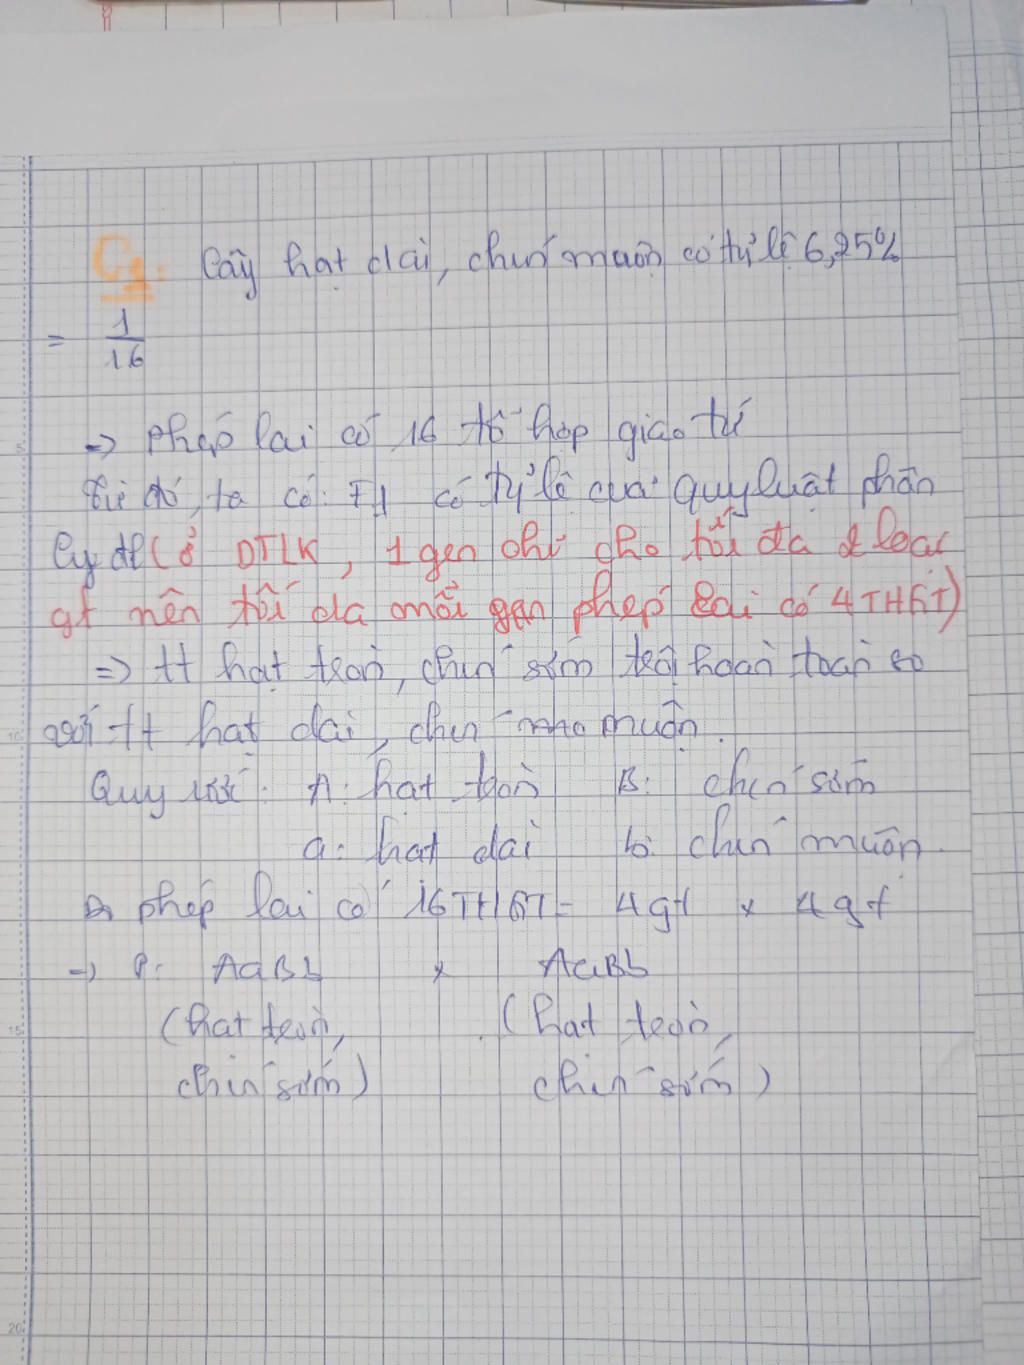 C1. Cây hạt dài, chín muộn có tỷ lệ 6,25%
= 1/16
=> phép lai có 16 tổ hợp giao tử
Từ đó, ta có: F1 có tỷ lệ của quy luật phân
ly đl (ở DTLK, 1 gen chỉ cho tối đa 2 loại
gt nên tối đa mỗi phép lai có 4THGT)
=> tt hạt tròn, chín sớm trội hoàn toàn so
với tt hạt dài, chín muộn.
Quy ước: A: hạt tròn B: chín sớm
a: hạt dài b: chín muộn
phép lai có 16THGT = 4gt x 4gt
=> P: AaBb x AaBb
(hạt tròn, (hạt tròn,
chín sớm) chín sớm)